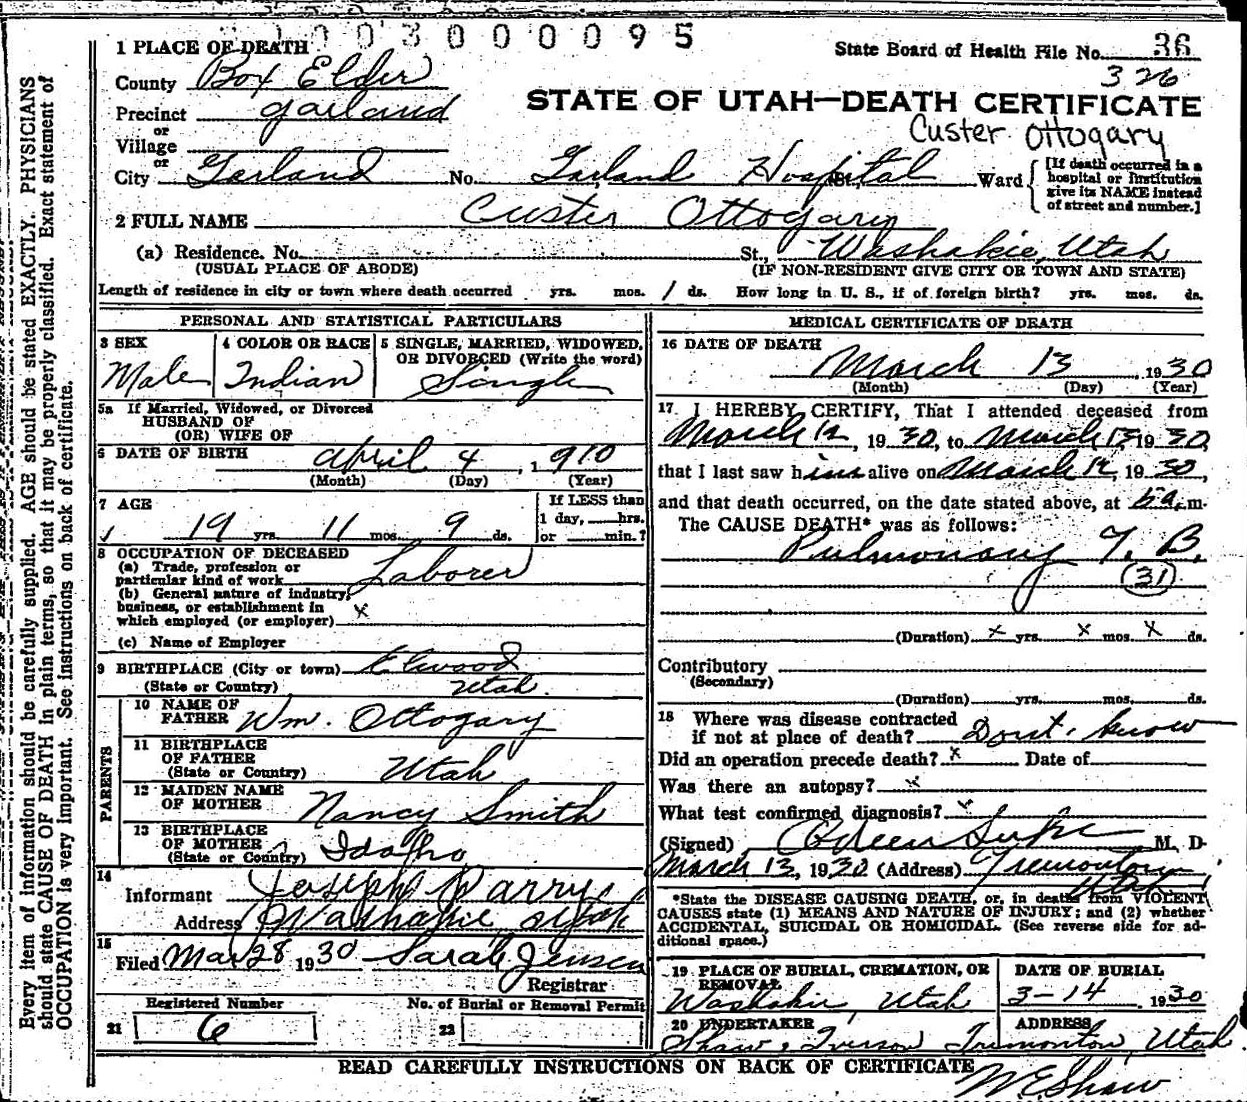 003000095
1 PLACE OF DEATH
State Board of Health File No. 36
326
County Box Elder
STATE OF UTAH—DEATH CERTIFICATE
Precinct Garland
or
Custer Ottogary
Village
or
City Garland No. Garland Hospital St., Ward
[If death occurred in a hospital or institution give its NAME instead of street and number.]
2 FULL NAME Custer Ottogary
(a) Residence. No. St., Washakie, Utah
(USUAL PLACE OF ABODE) (IF NON-RESIDENT GIVE CITY OR TOWN AND STATE)
Length of residence in city or town where death occurred yrs. mos. 1 ds. How long in U. S., if of foreign birth? yrs. mos. ds.
PERSONAL AND STATISTICAL PARTICULARS
3 SEX Male
4 COLOR OR RACE Indian
5 SINGLE, MARRIED, WIDOWED, OR DIVORCED (Write the word) Single
5a If Married, Widowed, or Divorced
HUSBAND OF
(OR) WIFE OF
6 DATE OF BIRTH April 4, 1910
(Month) (Day) (Year)
7 AGE
19 yrs. 11 mos. 9 ds.
If LESS than
1 day, hrs.
or min.?
8 OCCUPATION OF DECEASED
(a) Trade, profession or
particular kind of work Laborer
(b) General nature of industry,
business, or establishment in
which employed (or employer) x
(c) Name of Employer
9 BIRTHPLACE (City or town) Elwood
(State or Country) Utah.
PARENTS
10 NAME OF
FATHER Wm. Ottogary
11 BIRTHPLACE
OF FATHER
(State or Country) Utah
12 MAIDEN NAME
OF MOTHER Nancy Smith
13 BIRTHPLACE
OF MOTHER
(State or Country) Idaho
14
Informant Joseph Warry
Address Washakie, Utah
15
Filed Mar 28 1930 Sarah Jensen
Registrar
Registered Number
21 6
No. of Burial or Removal Permit
22
MEDICAL CERTIFICATE OF DEATH
16 DATE OF DEATH
March 13, 1930
(Month) (Day) (Year)
17 I HEREBY CERTIFY, That I attended deceased from
March 12, 1930, to March 13, 1930,
that I last saw him alive on March 12, 1930,
and that death occurred, on the date stated above, at 5 a.m.
The CAUSE DEATH* was as follows:
Pulmonary T. B.
(31)
(Duration) x yrs. x mos. x ds.
Contributory
(Secondary)
(Duration) yrs. mos. ds.
18 Where was disease contracted
if not at place of death? Dont know
Did an operation precede death? x Date of
Was there an autopsy? x
What test confirmed diagnosis? x
(Signed) M. D.
March 13, 1930 (Address) Tremonton
Utah
*State the DISEASE CAUSING DEATH, or, in deaths from VIOLENT
CAUSES state (1) MEANS AND NATURE OF INJURY; and (2) whether
ACCIDENTAL, SUICIDAL OR HOMICIDAL. (See reverse side for ad-
ditional space.)
19 PLACE OF BURIAL, CREMATION, OR
REMOVAL
Washakie, Utah
DATE OF BURIAL
3-14 1930
20 UNDERTAKER
Shaw & Iverson
ADDRESS
Tremonton, Utah
READ CAREFULLY INSTRUCTIONS ON BACK OF CERTIFICATE
W. E. Shaw
Every item of information should be carefully supplied. AGE should be stated EXACTLY. PHYSICIANS
should state CAUSE OF DEATH in plain terms, so that it may be properly classified. Exact statement of
OCCUPATION is very important. See instructions on back of certificate.